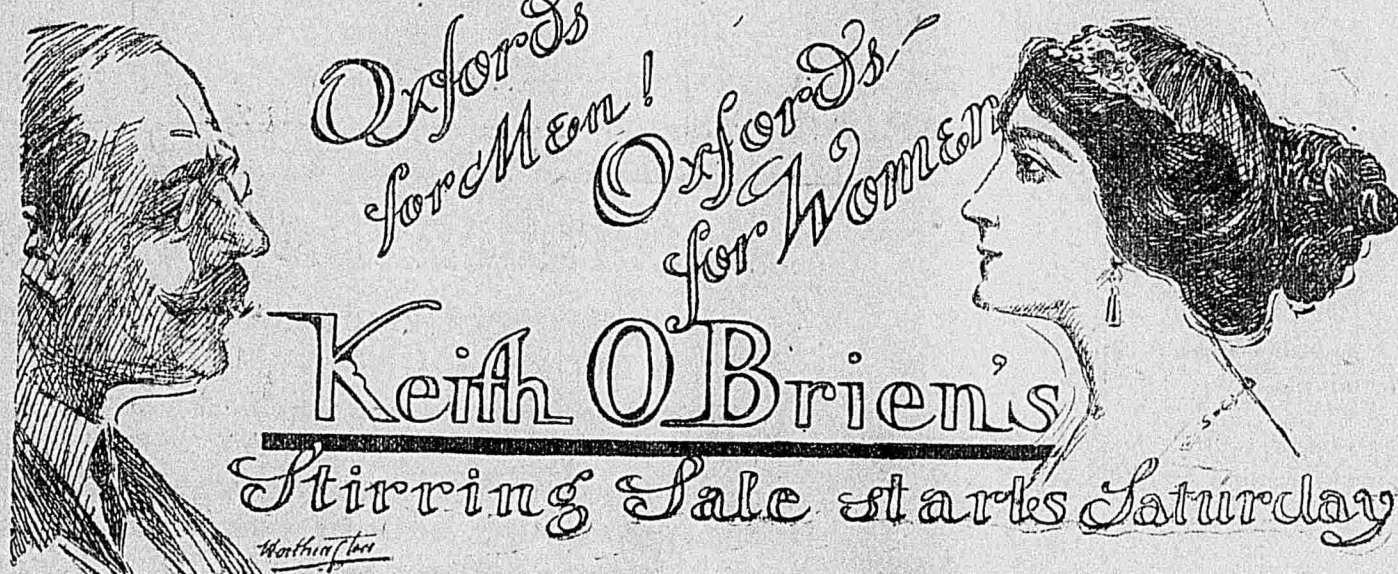 Oxfords
for Men!
Oxfords
for Women
Keith O'Brien's
Stirring Sale starts Saturday
Worthington